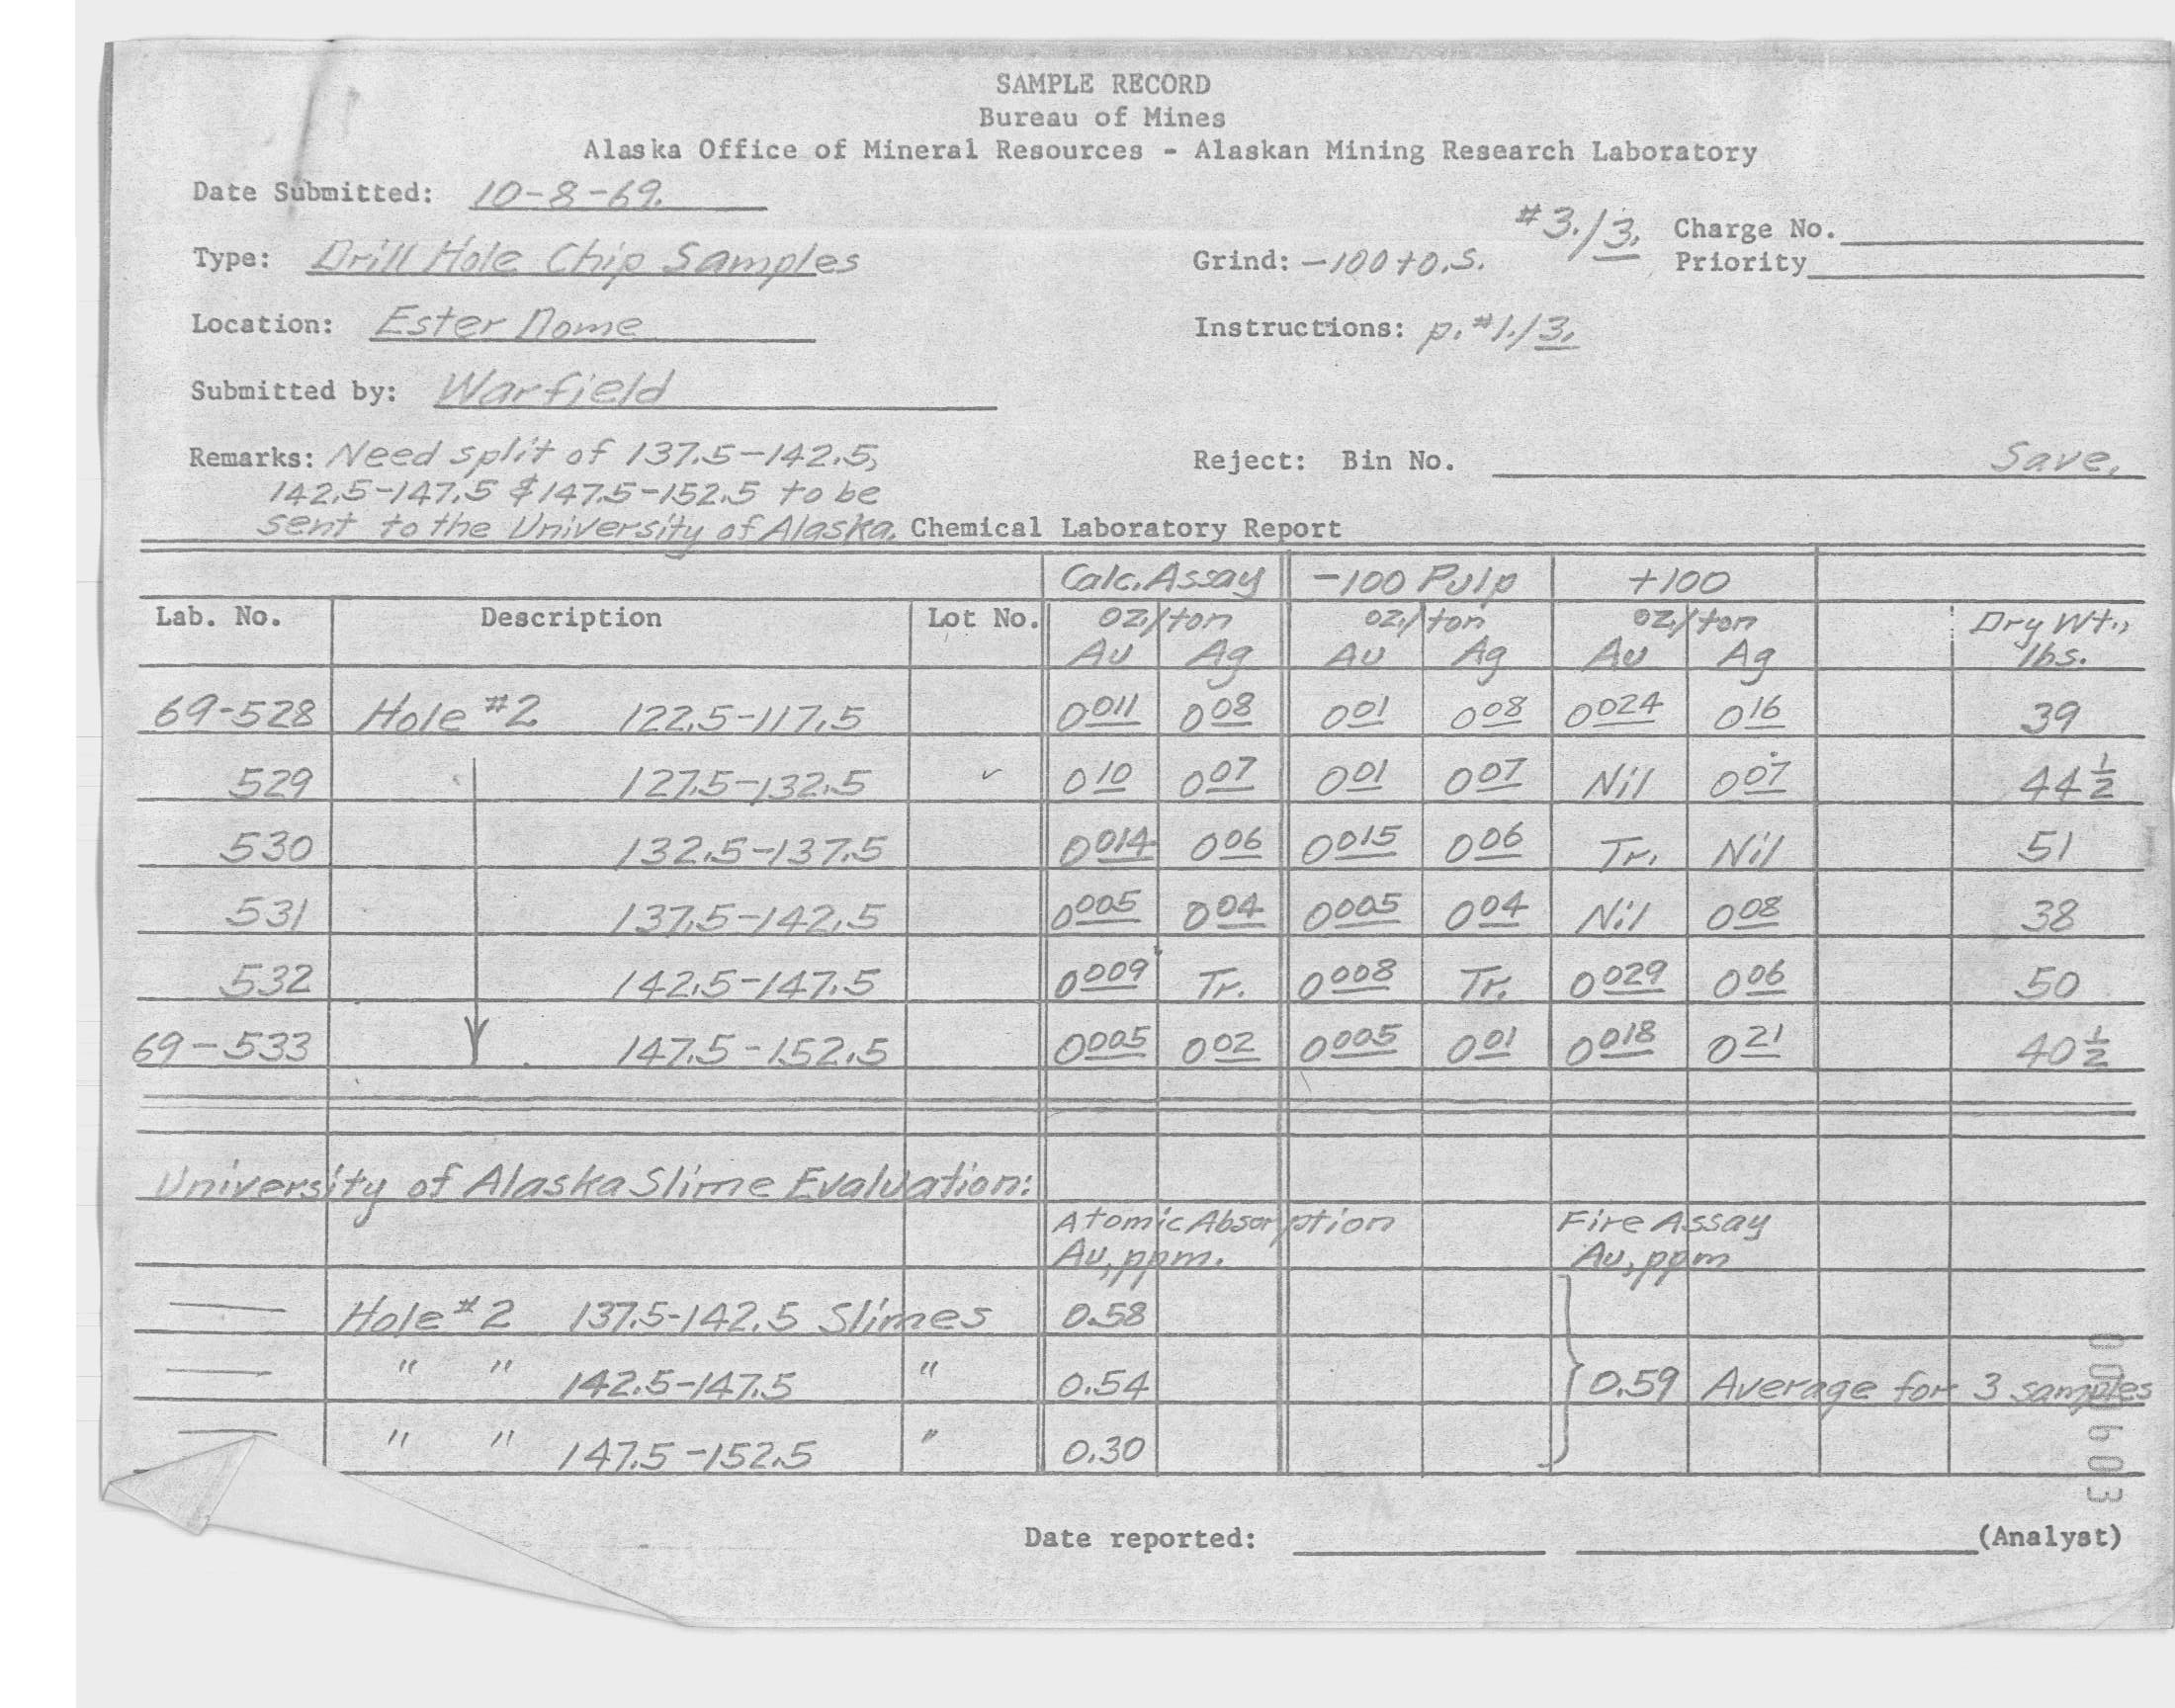 SAMPLE RECORD
Bureau of Mines
Alaska Office of Mineral Resources - Alaskan Mining Research Laboratory
Date Submitted: 10-8-69.
#3./3. Charge No.
Type: Drill Hole Chip Samples Grind: -100 to.S. Priority
Location: Ester Dome Instructions: p. #1./3.
Submitted by: Warfield
Remarks: Need split of 137.5-142.5, Reject: Bin No. Save.
142.5-147.5 & 147.5-152.5 to be
sent to the University of Alaska. Chemical Laboratory Report
Calc. Assay -100 Pulp +100
Lab. No. Description Lot No. oz./ton oz./ton oz./ton Dry Wt.,
Au Ag Au Ag Au Ag lbs.
69-528 Hole #2 122.5-117.5 0011 008 001 008 0024 016 39
529 127.5-132.5 ✓ 010 007 001 007 Nil 007 44 1/2
530 132.5-137.5 0014 006 0015 006 Tr. Nil 51
531 137.5-142.5 0005 004 0005 004 Nil 008 38
532 142.5-147.5 0009 Tr. 0008 Tr. 0029 006 50
69-533 147.5-152.5 0005 002 0005 001 0018 021 40 1/2
University of Alaska Slime Evaluation:
Atomic Absorption Fire Assay
Au, ppm. Au, ppm
— Hole #2 137.5-142.5 Slimes 0.58
— " " 142.5-147.5 " 0.54 0.59 Average for 3 samples
— " " 147.5-152.5 " 0.30
Date reported: (Analyst)